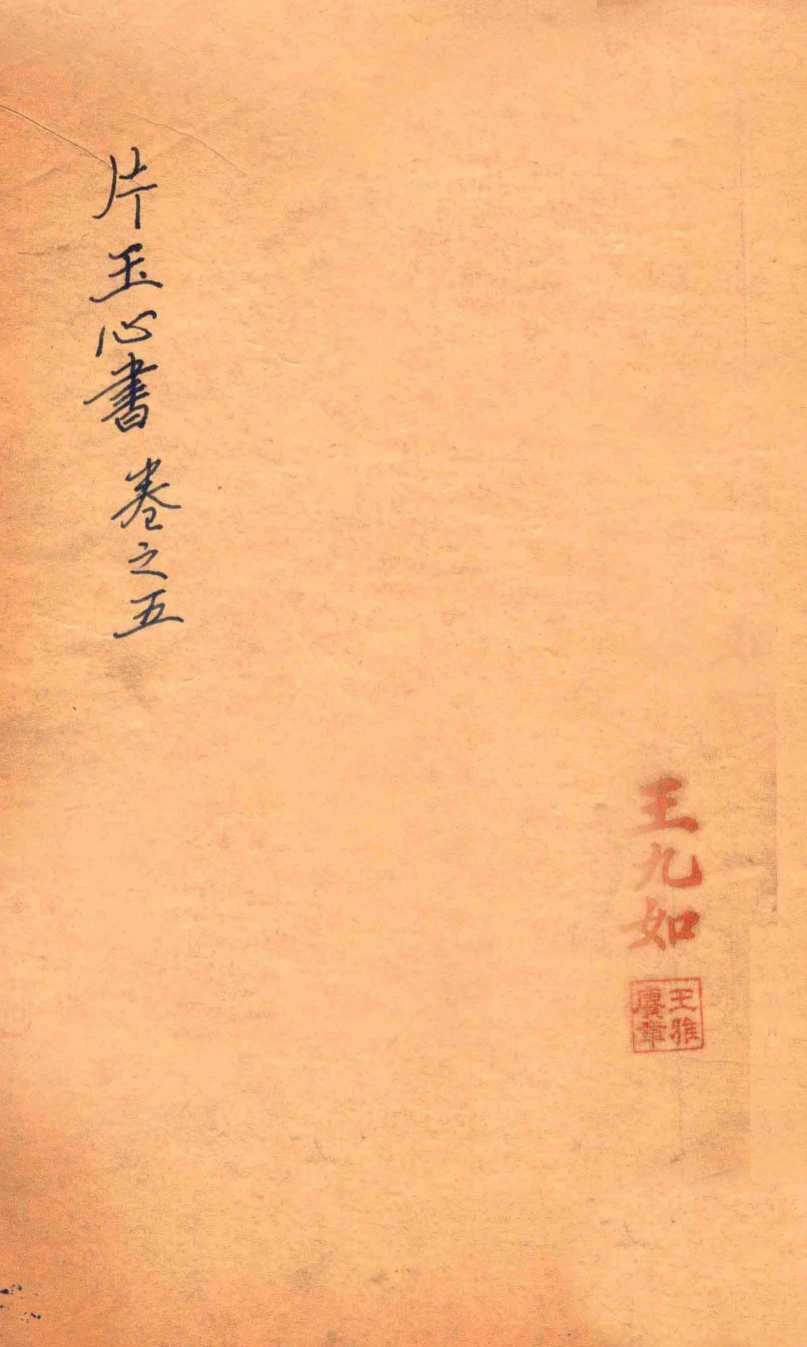 片玉心書 卷之五
王九如
王雅
賡章